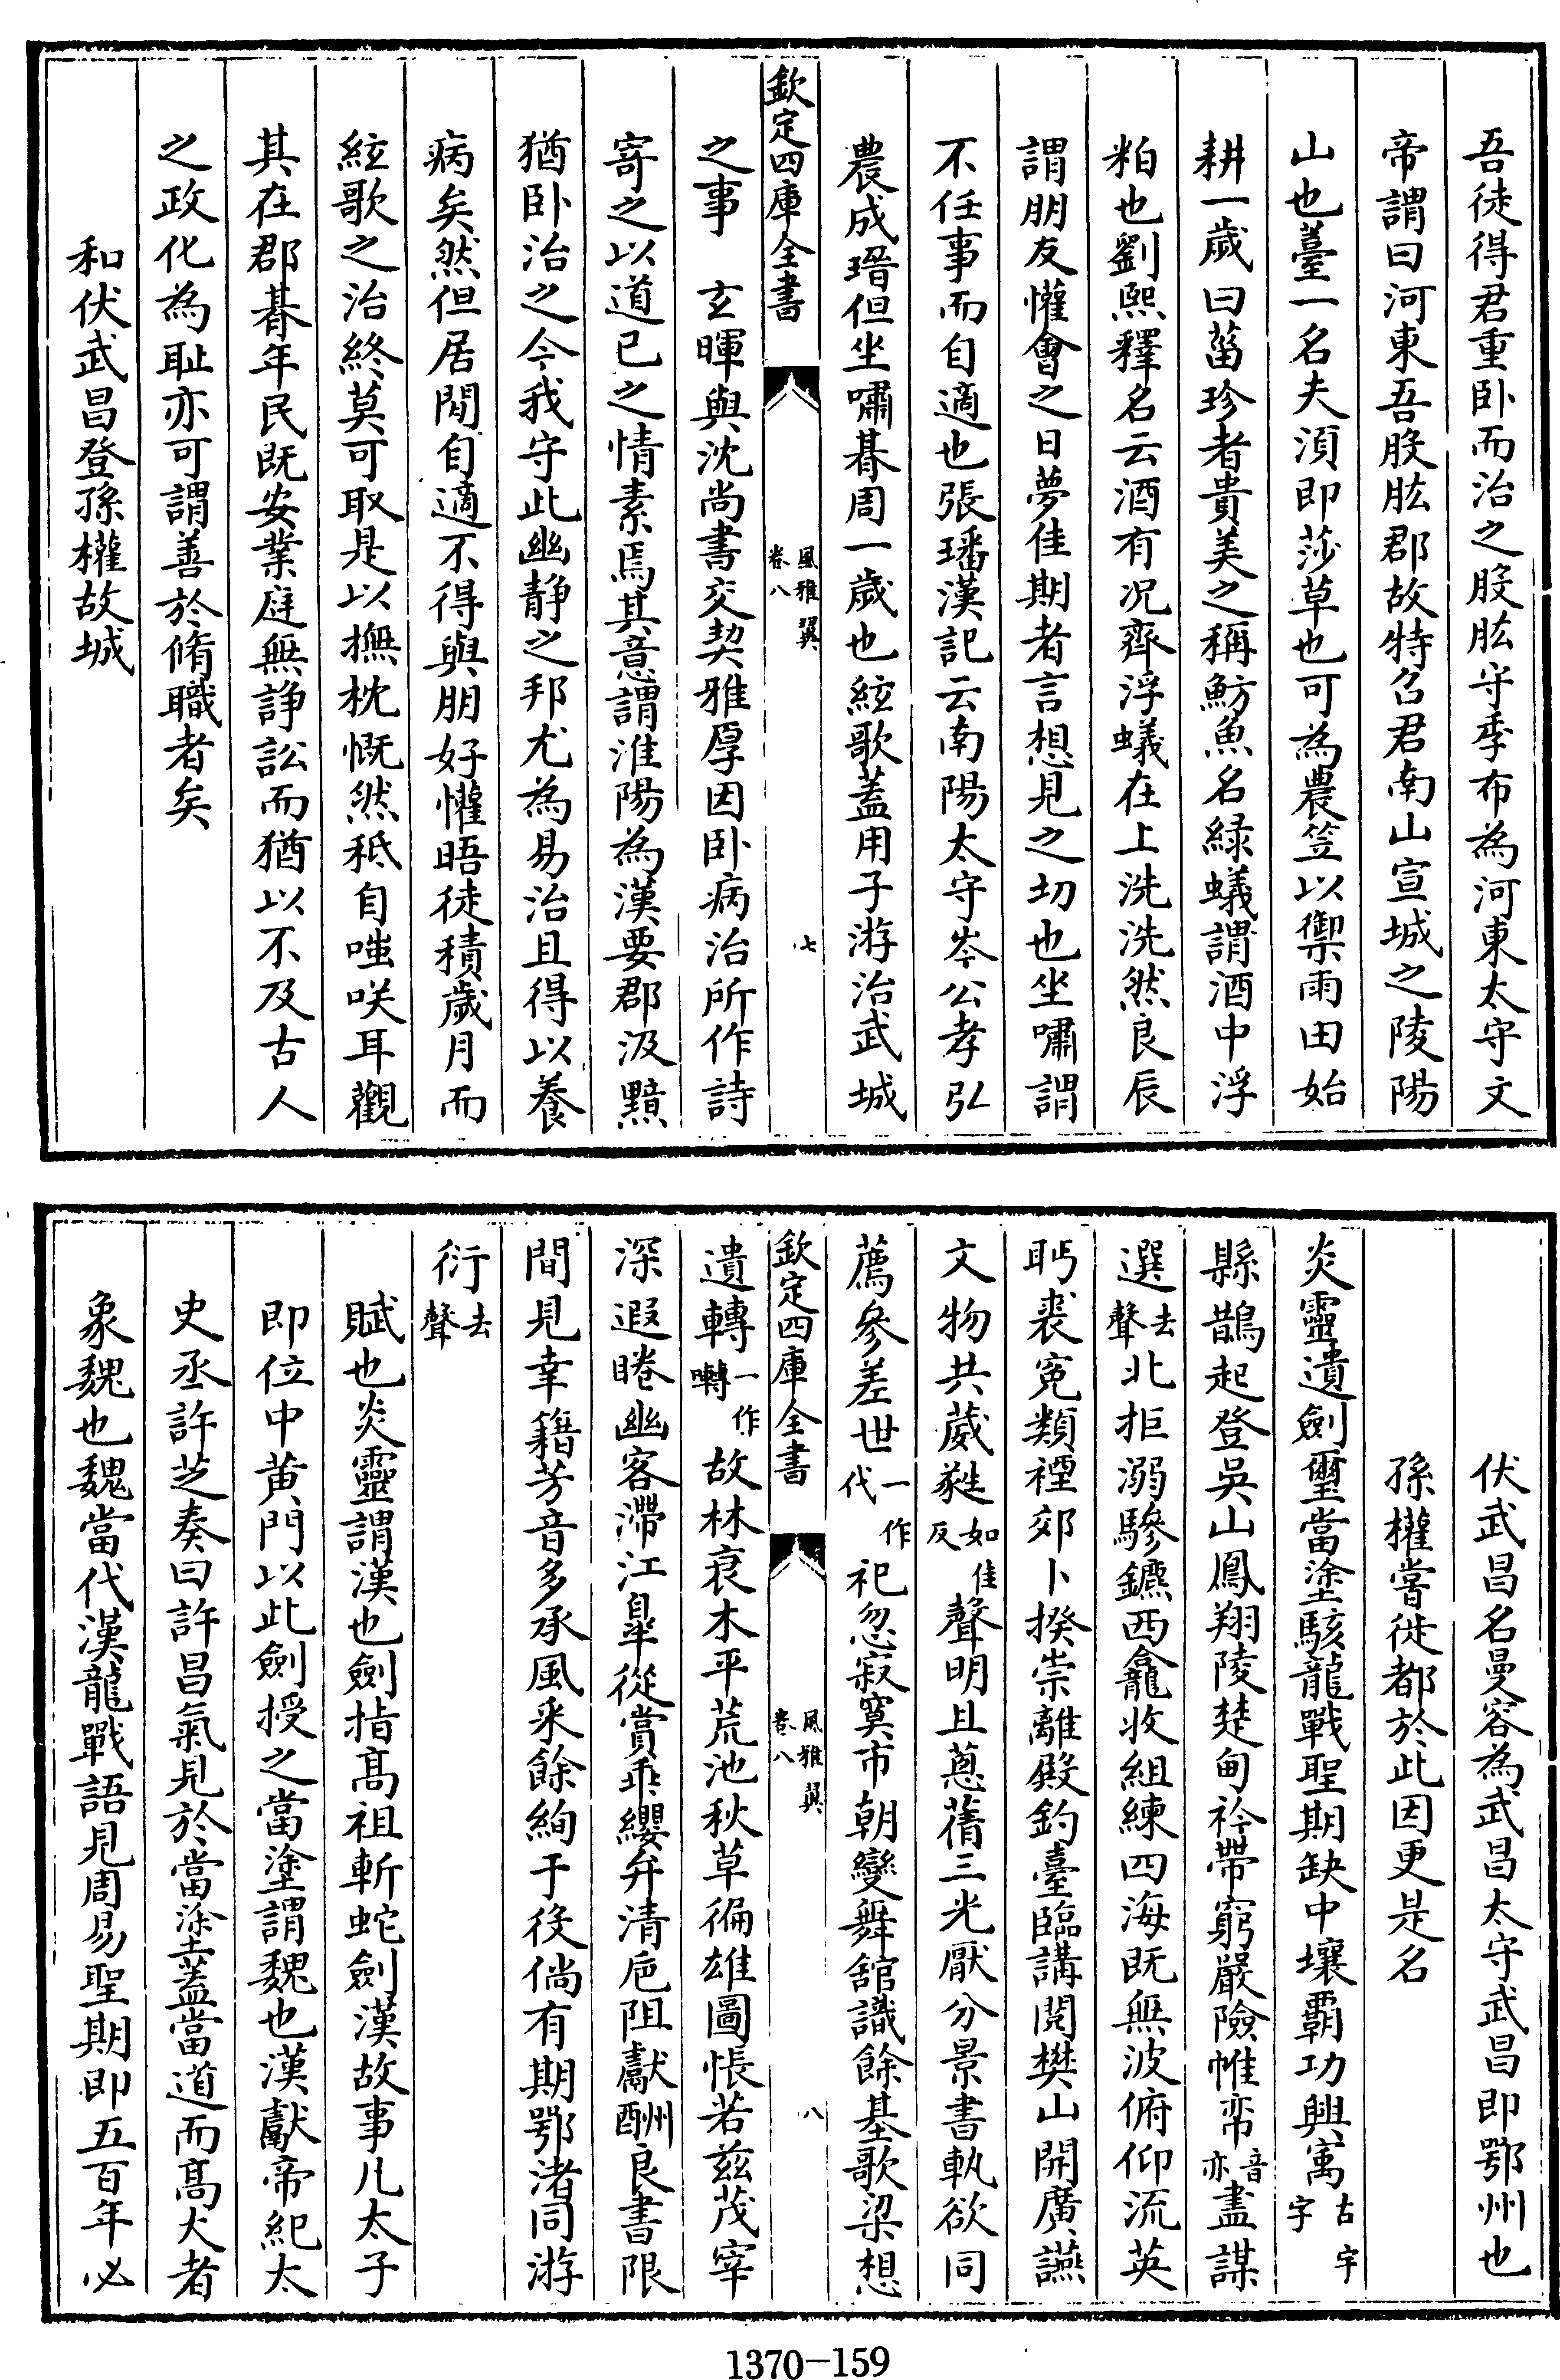 吾徒得君重卧而治之股肱守季布為河東太守文
帝謂曰河東吾股肱郡故特召君南山宣城之陵陽
山也薹一名夫湏即莎草也可為農笠以禦雨田始
耕一歲曰菑珍者貴美之稱魴魚名緑蟻謂酒中浮
粕也劉熙釋名云酒有况齊浮蟻在上洗洗然良辰
謂朋友懽會之日夢佳期者言想見之切也坐嘯謂
不任事而自適也張璠漢記云南陽太守岑公孝弘
農成瑨但坐嘯朞周一歲也絃歌蓋用子游治武城
欽定四庫全書
風雅翼
卷八
七
之事　玄暉與沈尚書交契雅厚因卧病治所作詩
寄之以道已之情素焉其意謂淮陽為漢要郡汲黯
猶卧治之今我守此幽静之邦尤為易治且得以養
病矣然但居閒自適不得與朋好懽晤徒積歲月而
絃歌之治終莫可取是以撫枕慨然秪自嗤咲耳觀
其在郡朞年民既安業庭無諍訟而猶以不及古人
之政化為恥亦可謂善於脩職者矣
和伏武昌登孫權故城
伏武昌名曼容為武昌太守武昌即鄂州也
孫權嘗徙都於此因更是名
炎靈遺劍璽當塗駭龍戰聖期缺中壤霸功興㝢古宇字
縣鵲起登吳山鳳翔陵楚甸衿帶窮巖險帷帟音亦盡謀
選去聲北拒溺驂鑣西龕收組練四海既無波俯仰流英
眄裘冕類禋郊卜揆崇離殿釣臺臨講閱樊山開廣讌
文物共葳蕤如佳反聲明且蔥蒨三光厭分景書軌欲同
薦參差世一作代祀忽寂寞市朝變舞舘識餘基歌梁想
欽定四庫全書
風雅翼
卷八
八
遺轉一作囀故林衰木平荒池秋草徧雄圖悵若兹茂宰
深遐睠幽客滯江臯從賞乖纓弁清巵阻獻酬良書限
間見幸籍芳音多承風采餘絢于役倘有期鄂渚同游
衍去聲
賦也炎靈謂漢也劍指髙祖斬蛇劍漢故事凡太子
即位中黄門以此劍授之當塗謂魏也漢獻帝紀太
史丞許芝奏曰許昌氣見於當塗蓋當道而髙大者
象魏也魏當代漢龍戰語見周易聖期即五百年必
1370-159